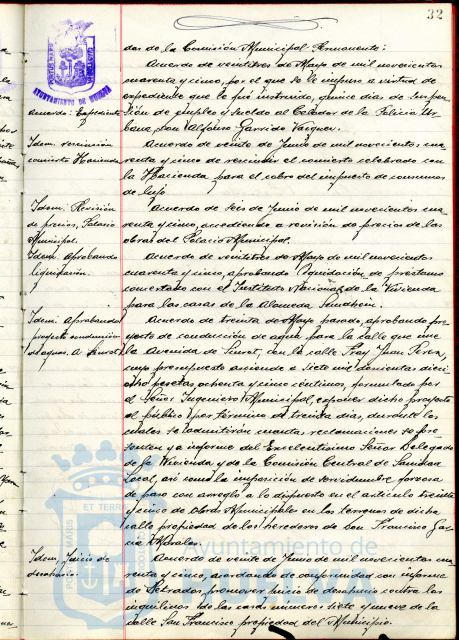 32
dos de la Comisión Municipal Permanente:
Acuerdo de veintitres de Mayo de mil novecientos
cuarenta y cinco, por el que se le impuso a virtud de
AYUNTAMIENTO DE HUELVA
Acuerdo: Expediente
expediente que le fué instruido, quince dias de suspen-
sión de empleo y sueldo al Celador de la Policia Ur-
bana, Don Alfonso Garrido Vazquez.
Idem. rescisión
concierto Hacienda
Acuerdo de veinte de Junio de mil novecientos cua-
renta y cinco de rescindir el concierto celebrado con
la Hacienda para el cobro del impuesto de consumos
de lujo.
Idem: Revisión
de precios, Palacio
Municipal.
Acuerdo de seis de Junio de mil novecientos cua-
renta y cinco, accediendo a revisión de precios de las
obras del Palacio Municipal.
Idem. Aprobando
liquidación.
Acuerdo de veintitres de Mayo de mil novecientos
cuarenta y cinco, aprobando liquidación de préstamo
concertado con el Instituto Nacional de la Vivienda
para las casas de la Alameda Sundheim.
Idem: Aprobando
proyecto conducción
de aguas. A.
Acuerdo de treinta de Mayo pasado, aprobando pro-
yecto de conducción de agua para la calle que une
la Avenida de con la calle Fray Juan Perez,
cuyo presupuesto asciende a siete mil doscientas dieci
ocho pesetas ochenta y cinco céntimos, formulado por
el Señor Ingeniero Municipal, exponer dicho proyecto
al público por término de treinta dias, durante los
cuales se admitirán cuantas reclamaciones se pre-
senten y a informe del Excelentisimo Señor Delegado
de la Vivienda y de la Comisión Central de Sanidad
Local, asi como la imposición de servidumbre forzosa
de paso con arreglo a lo dispuesto en el articulo treinta
y cinco de Obras Municipales en los terrenos de dicha
calle propiedad de los herederos de Don Francisco Gar-
cia Morales.
Idem, Juicio de
desahucio.
Acuerdo de veinte de Junio de mil novecientos cua-
renta y cinco, acordando de conformidad con informe
de Letrados promover juicio de desahucio contra los
inquilinos de las casas números siete y nueve de la
calle San Francisco propiedad del Municipio.
Ayuntamiento de
HUELVA